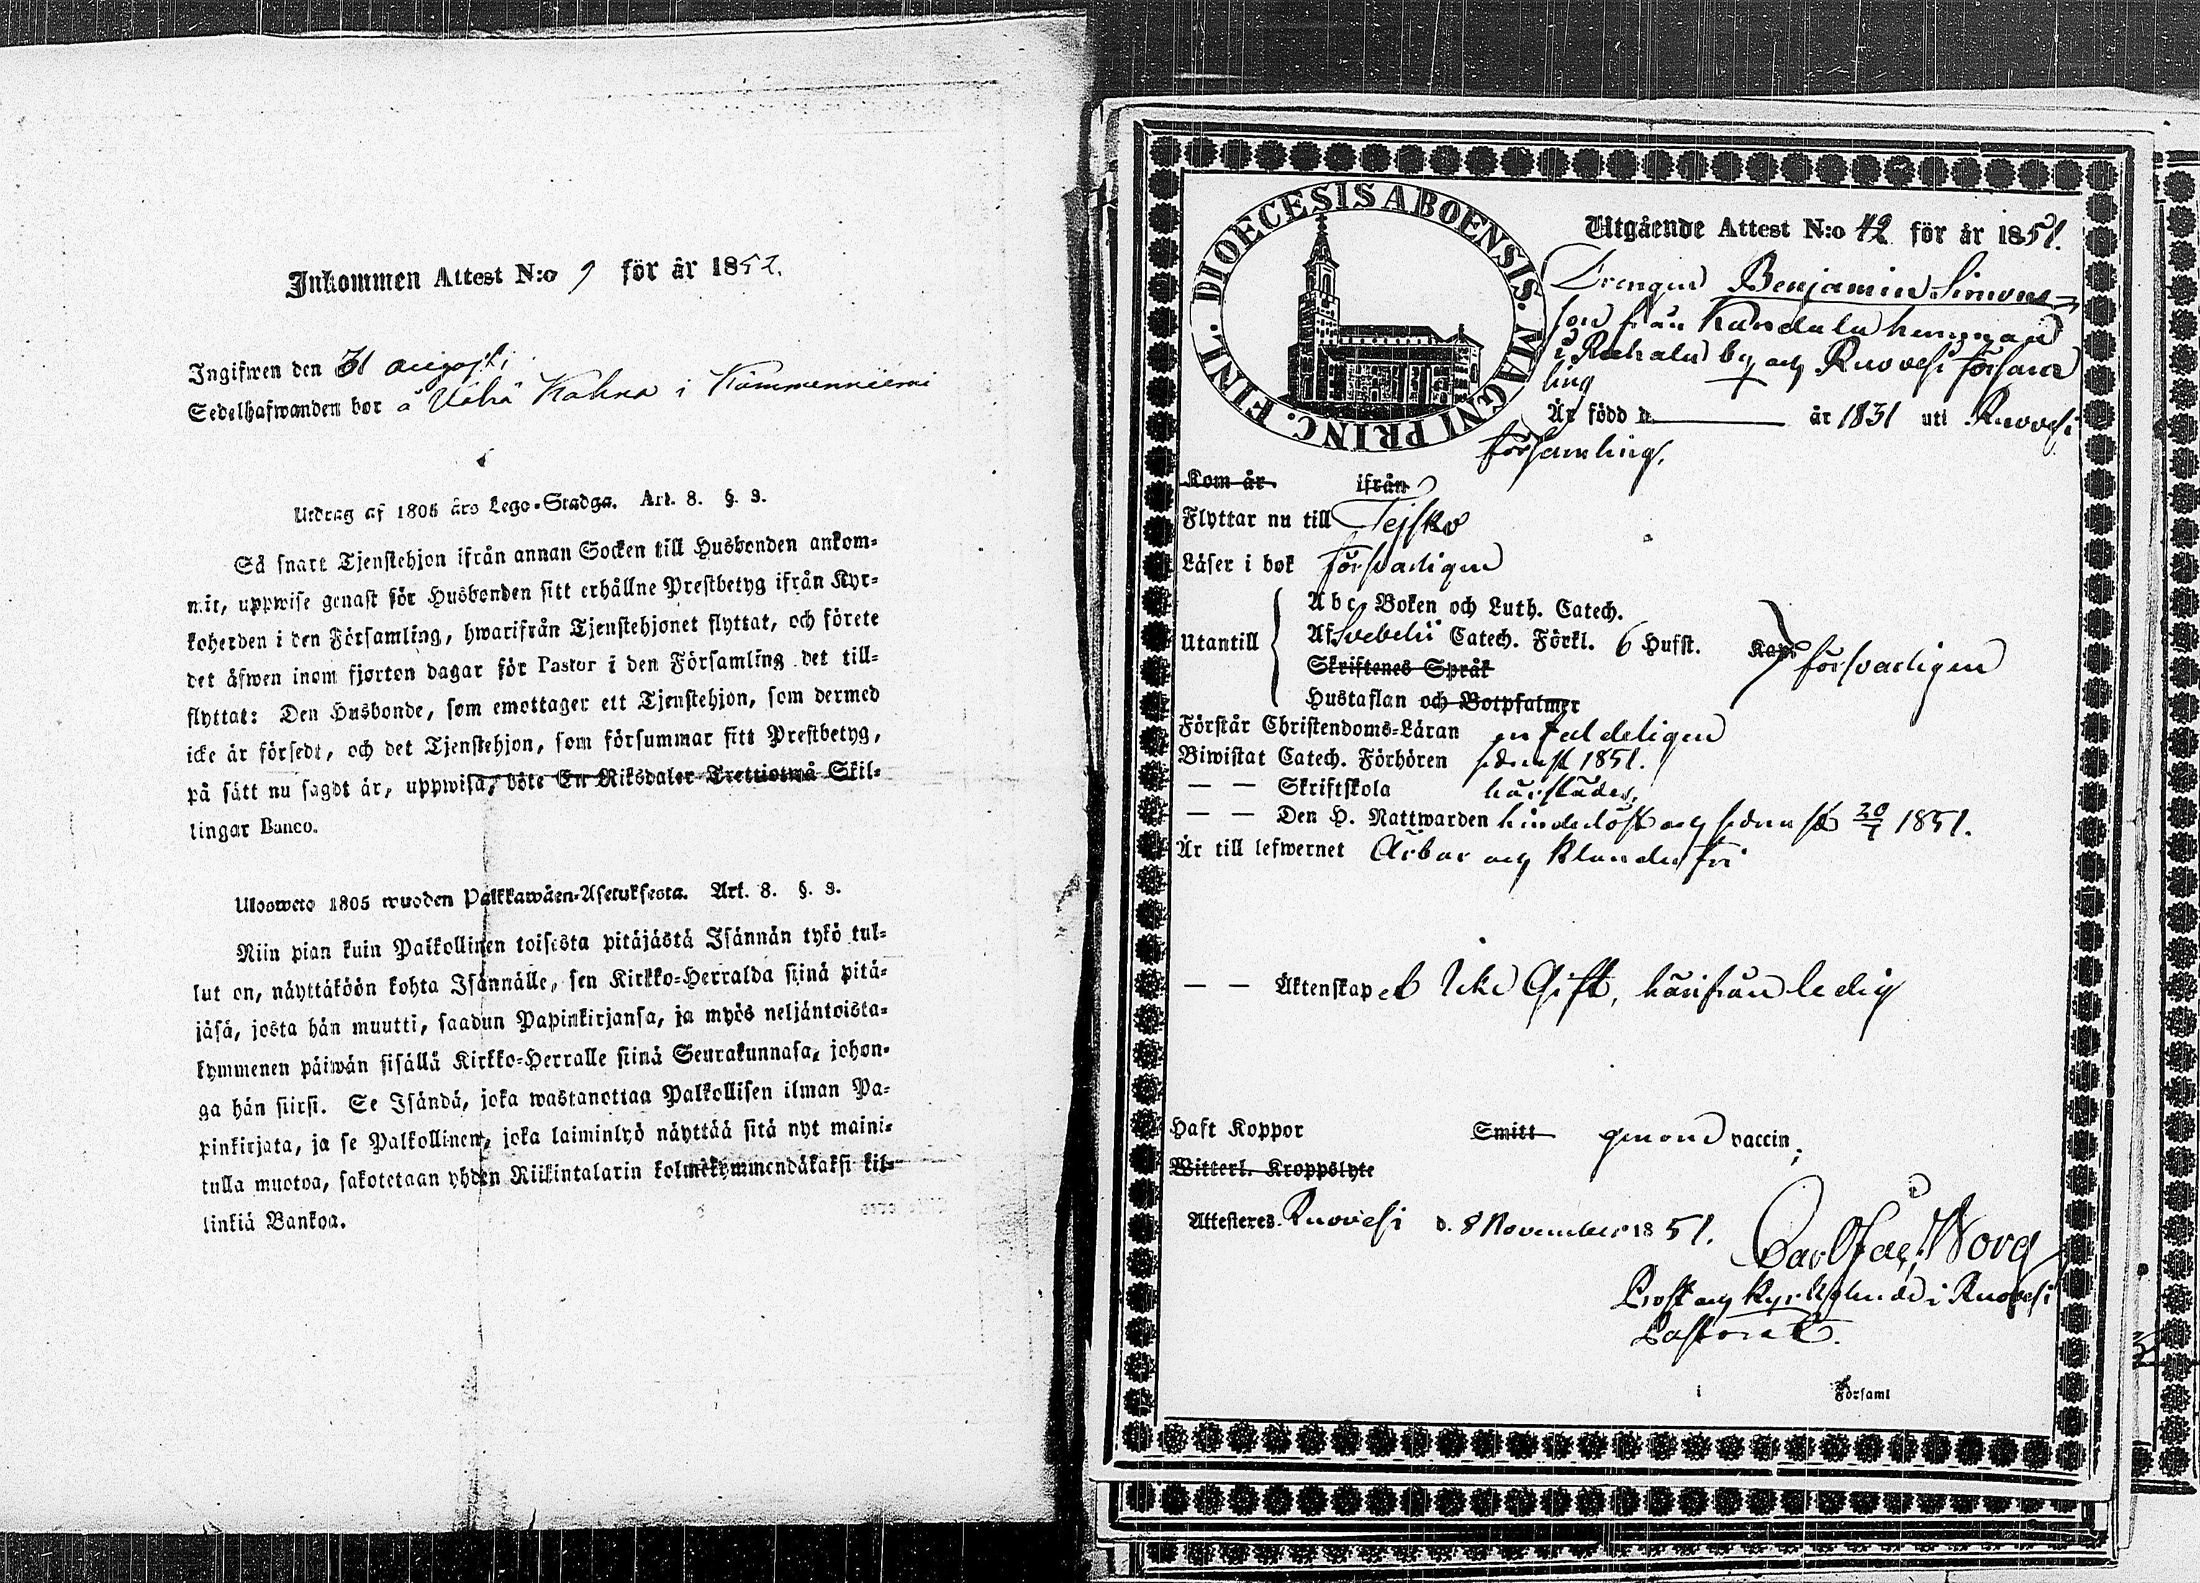 Inkommen Attest N:o 9 för år 1852.
Ingifwen den 31 augosti
Sedelhafwanden bor å Vähä Kahra i Kämmenniemi
Utdrag af 1805 års Lego-Stadga. Art. 8. §. 3.
Så snart Tjenstehjon ifrån annan Socken till Husbonden ankom-
mit, uppwise genast för Husbonden sitt erhållne Prestbetyg ifrån Kyr-
koherden i den Församling, hwarifrån Tjenstehjonet flyttat, och förete
det äfwen inom fjorton dagar för Pastor i den Församling det till-
flyttat: Den Husbonde, som emottager ett Tjenstehjon, som dermed
icke är försedt, och det Tjenstehjon, som försummar sitt Prestbetyg,
på sätt nu sagdt är, uppwisa, böte En Riksdaler Trettiotwå Skil-
lingar Banco.
Ulosweto 1805 wuoden Palkkawäen-Asetuksesta. Art. 8. §. 3.
Niin pian kuin Palkollinen toisesta pitäjästä Isännän tykö tul-
lut on, näyttäköön kohta Isännälle, sen Kirkko-Herralda siinä pitä-
jäsä, josta hän muutti, saadun Papinkirjansa, ja myös neljäntoista-
kymmenen päiwän sisällä Kirkko-Herralle siinä Seurakunnasa, johon-
ga hän siirsi. Se Isändä, joka wastanottaa Palkollisen ilman Pa-
pinkirjata, ja se Palkollinen, joka laiminlyö näyttää sitä nyt maini-
tulla muotoa, sakotetaan yhden Riikintalarin kolmekymmendäkaksi kil-
linkiä Bankoa.
DIOECESIS ABOENSIS. MAGNI PRINC. FINL.
Utgående Attest N:o 42 för år 1851.
Drengen Benjamin Simons-
son från hemman
i by och Ruovesi försam
ling
Är född d. år 1831 uti Ruovesi
församling.
Kom år ifrån
Flyttar nu till Tejsko
Läser i bok försvarligen
Utantill
Abc-Boken och Luth. Catech.
Af Svebelii Catech. Förkl. 6 Hufst. Kap.
Skriftenes Språk
Hustaflan och Botpsalmer
försvarligen
Förstår Christendoms-Läran enfaldeligen
Biwistat Catech. Förhören sednast 1851.
— — Skriftskola härstädes,
— — Den H. Nattwarden hinderlöst och sednast 20/7 1851.
Är till lefwernet Ärbar och klanderfri
— — Äktenskapet Icke Gift, härifrån ledig
Haft Koppor Smitt genom vaccin,
Witterl. Kroppslyte
Attesteras. Ruovesi d. 8 November 1851.
Carl Jac. Worg
Prost och Kyrkoherde i Ruovesi
Pastorat.
i Församl